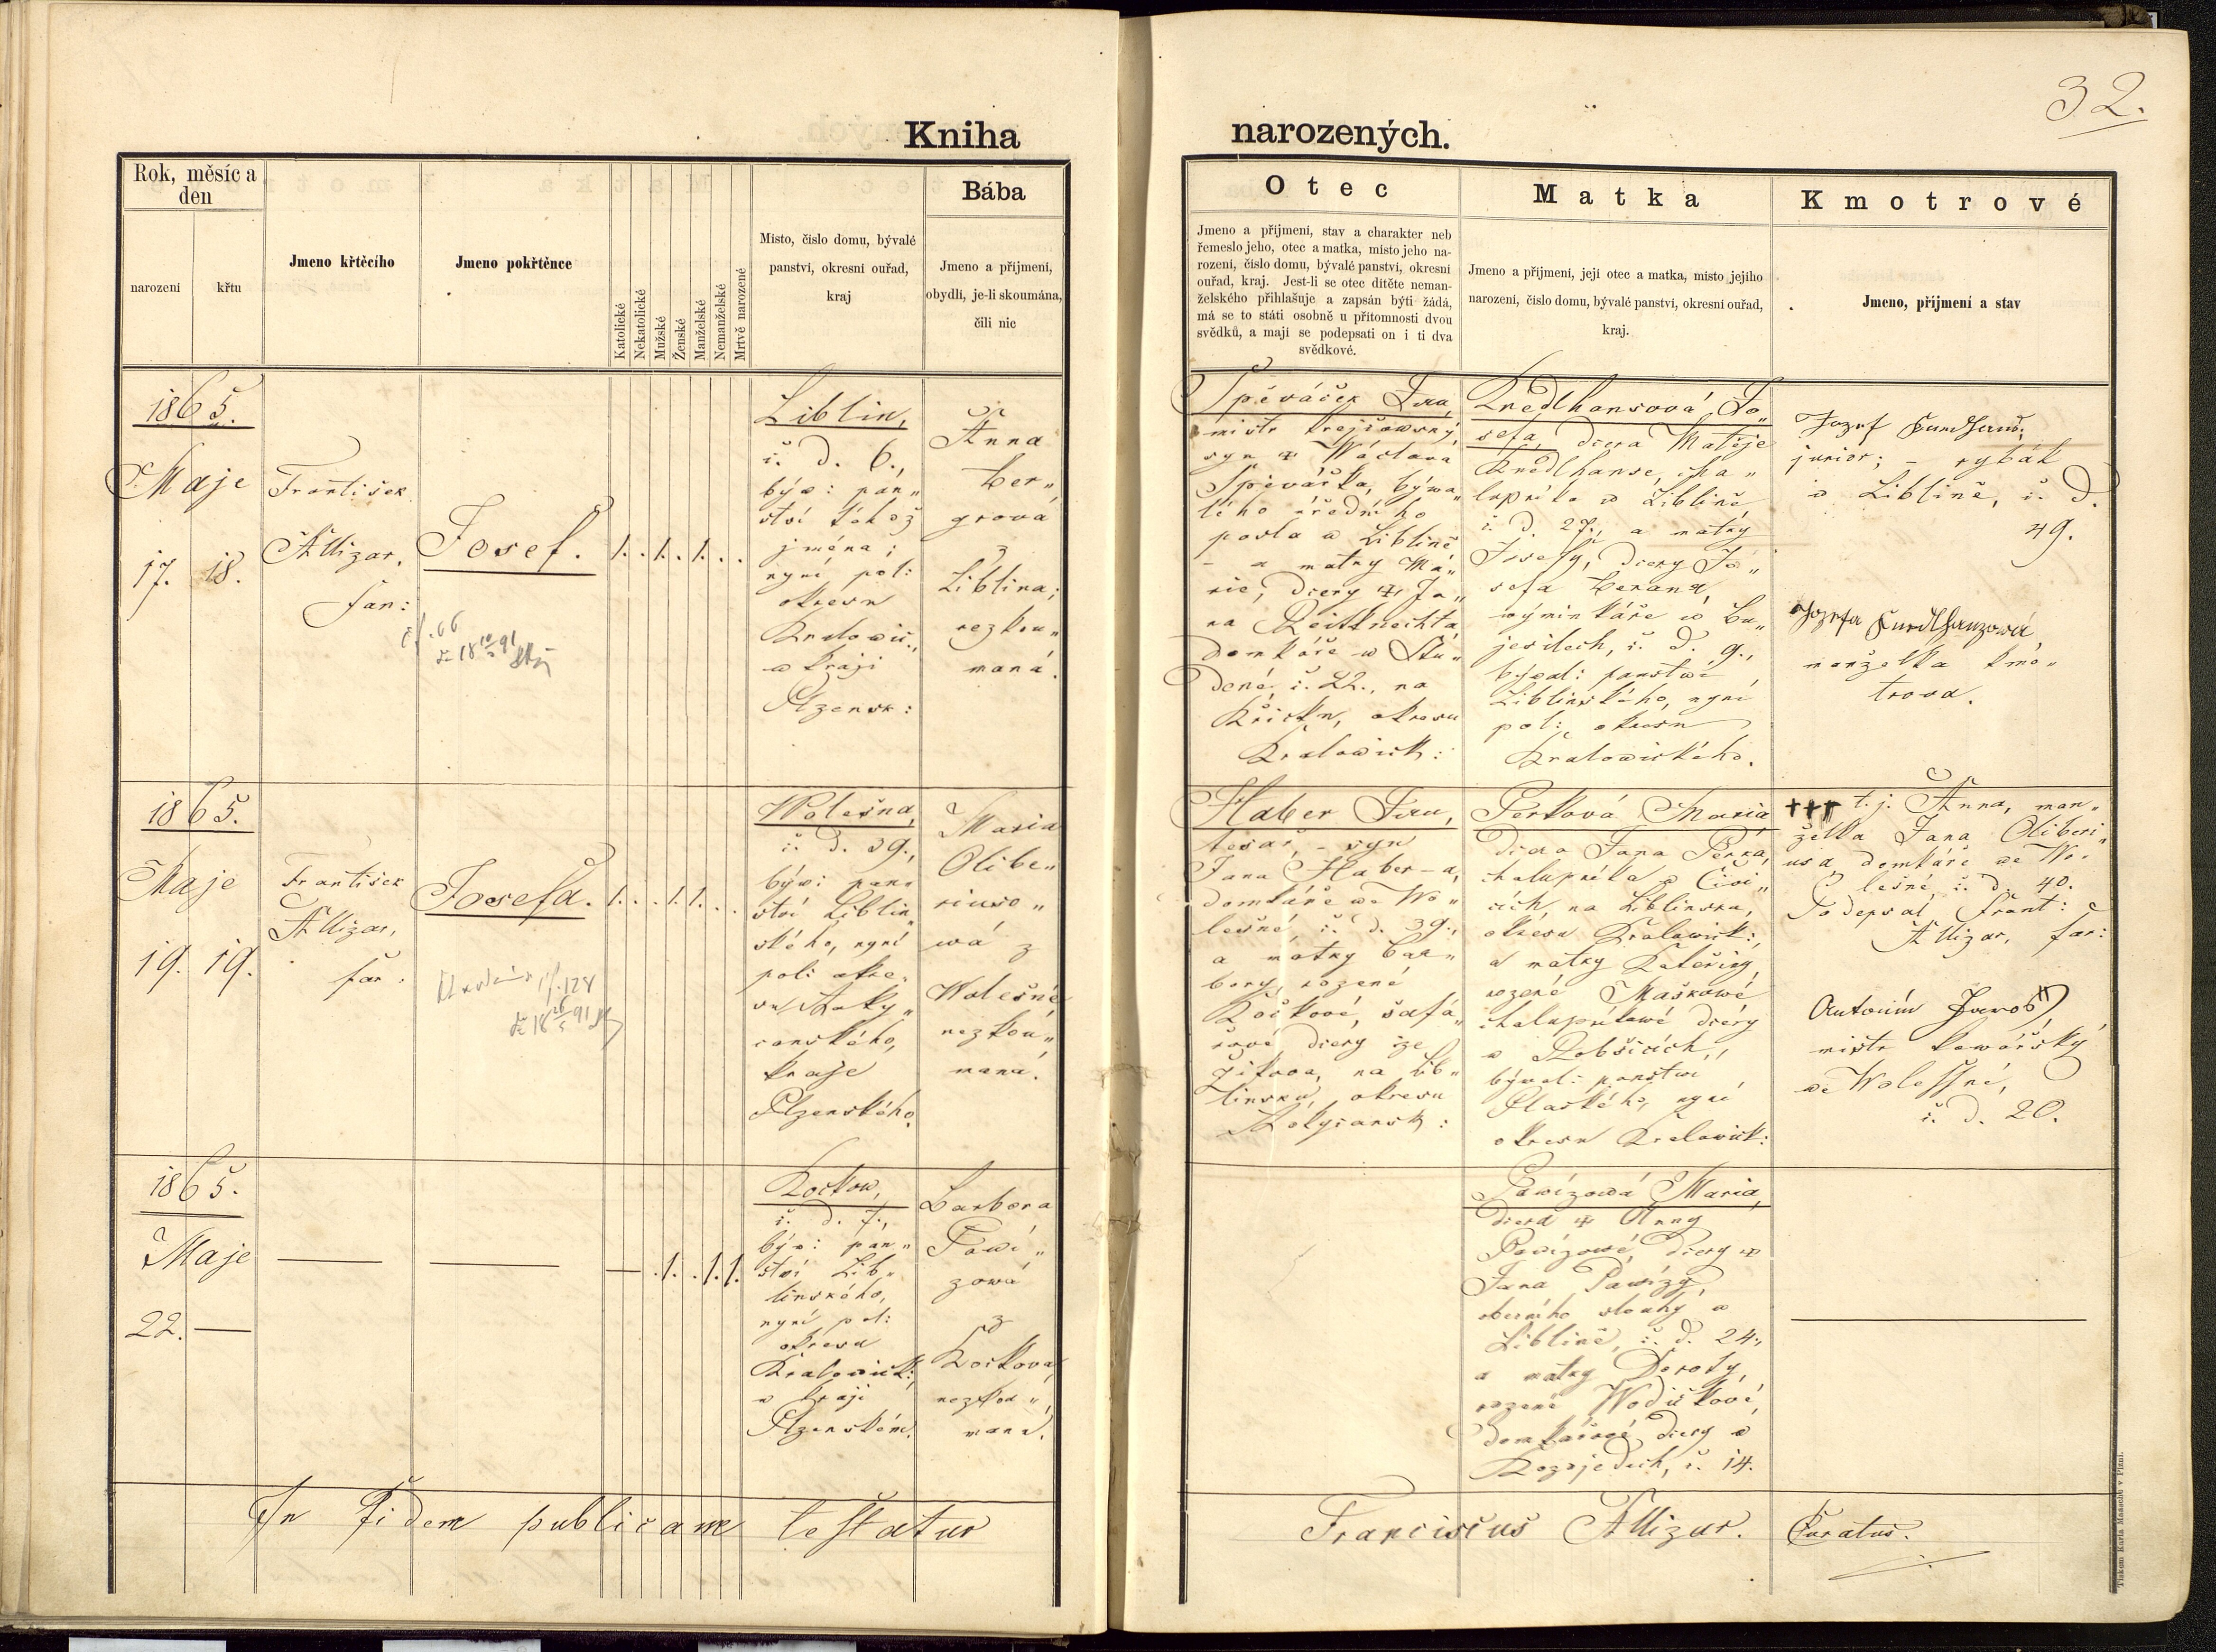 32.
Kniha narozených.
Rok, měsíc a
den
narození
křtu
Jmeno křtěcího
Jmeno pokřtěnce
Katolické
Nekatolické
Mužské
Ženské
Manželské
Nemanželské
Mrtvě narozené
Místo, číslo domu, bývalé
panství, okresní ouřad,
kraj
Bába
Jmeno a příjmení,
obydlí, je-li skoumána,
čili nic
Otec
Jmeno a příjmení, stav a charakter neb
řemeslo jeho, otec a matka, místo jeho na-
rození, číslo domu, bývalé panství, okresní
ouřad, kraj. Jest-li se otec dítěte neman-
želského přihlašuje a zapsán býti žádá,
má se to státi osobně u přítomnosti dvou
svědků, a mají se podepsati on i ti dva
svědkové.
Matka
Jmeno a příjmení, její otec a matka, místo jejího
narození, číslo domu, bývalé panství, okresní ouřad,
kraj.
Kmotrové
Jmeno, příjmení a stav
1865.
Maje
17. 18.
František
Allizar,
far:
Josef.
1. . 1. . 1. . .
Liblin,
č. d. 6.,
býv: pan„
ství téhož
jména;
nyní pol:
okresu
Kralowic.,
w kraji
Plzensk:
Anna
Ber„
grová
z
Liblina;
nezkou„
maná.
Spěváček Fra,
mistr krejčowský,
syn † Wáclava
Spěváčka, býwa„
lého úředního
posla w Liblině
- a matky Ma„
rie, dcery † Ja„
na Reitknechta,
domkáře w Stu„
dené, č. 22., na
Křicku, okresu
Kralowick:
Knedlhansová Jo„
sefa, dcera Matěje
Knedlhanse, cha„
lupníka w Liblině,
č. d. 27., a matky
Josefy, dcery Jo„
sefa Berana,
výminkáře w Bu„
jesilech, č. d. 9.,
býval: panství
Liblinského, nyní
pol: okresu
Kralowického.
junior; - rybák
w Liblině, č. d.
49.
manželka kmo„
trova.
1865.
Maje
19. 19.
František
Allizar,
far.
Josefa.
1. . . 1. 1. . .
Wolešna,
č. d. 39.,
býv: pan„
ství Liblin„
ského, nyní
pol: okre„
su Roky„
canského,
kraje
Plzenského.
Maria
Olibe„
riuso„
wá z
Wolešné
nezkou„
mana.
Haber Fra,
tesař, - syn
Jana Haber-a,
domkáře we Wo„
lešné, č. d. 39.,
a matky Bar„
bory, rozené
Kočkové, šafá„
řové dcery ze
Žikova, na Lib„
linsku, okresu
Rokycansk:
Perková Maria
dcera Jana Perka,
chalupníka w Čivi„
cích, na Liblinsku,
okresu Kralowick:,
a matky Kateřiny,
rozené Maškowé,
chalupníkowé dcery
w Robšicích,
býval: panství
Plaského, nyní
okresu Kralowick:
+++ t. j. Anna, man„
želka Jana Oliberi„
usa, domkáře we Wo„
lešné, č. d. 40.
Podepsal Frant:
Allizar, far:
mistr kowářský
we Wolešné,
č. d. 20.
1865.
Maje
22. —
— . 1. . . 1. 1.
Kočkow,
č. d. 7.,
býv: pan„
ství Lib„
linského,
nyní pol:
okresu
Kralowick:,
w kraji
Plzenském.
Barbora
Pawí„
zowá
z
Kočkova,
nezkou„
maná.
Pawízowá Maria,
dcera † Anny
Pawízowé, dcery †
Jana Pawízy,
obecního slouhy w
Liblině, č. d. 24.,
a matky Doroty,
rozené Wodičkové,
domkářové dcery w
Kozojedech, č. 14.
In fidem publicam testatur Franciscus Allizar. Curatus.
Tiskem Karla Maasche v Plzni.